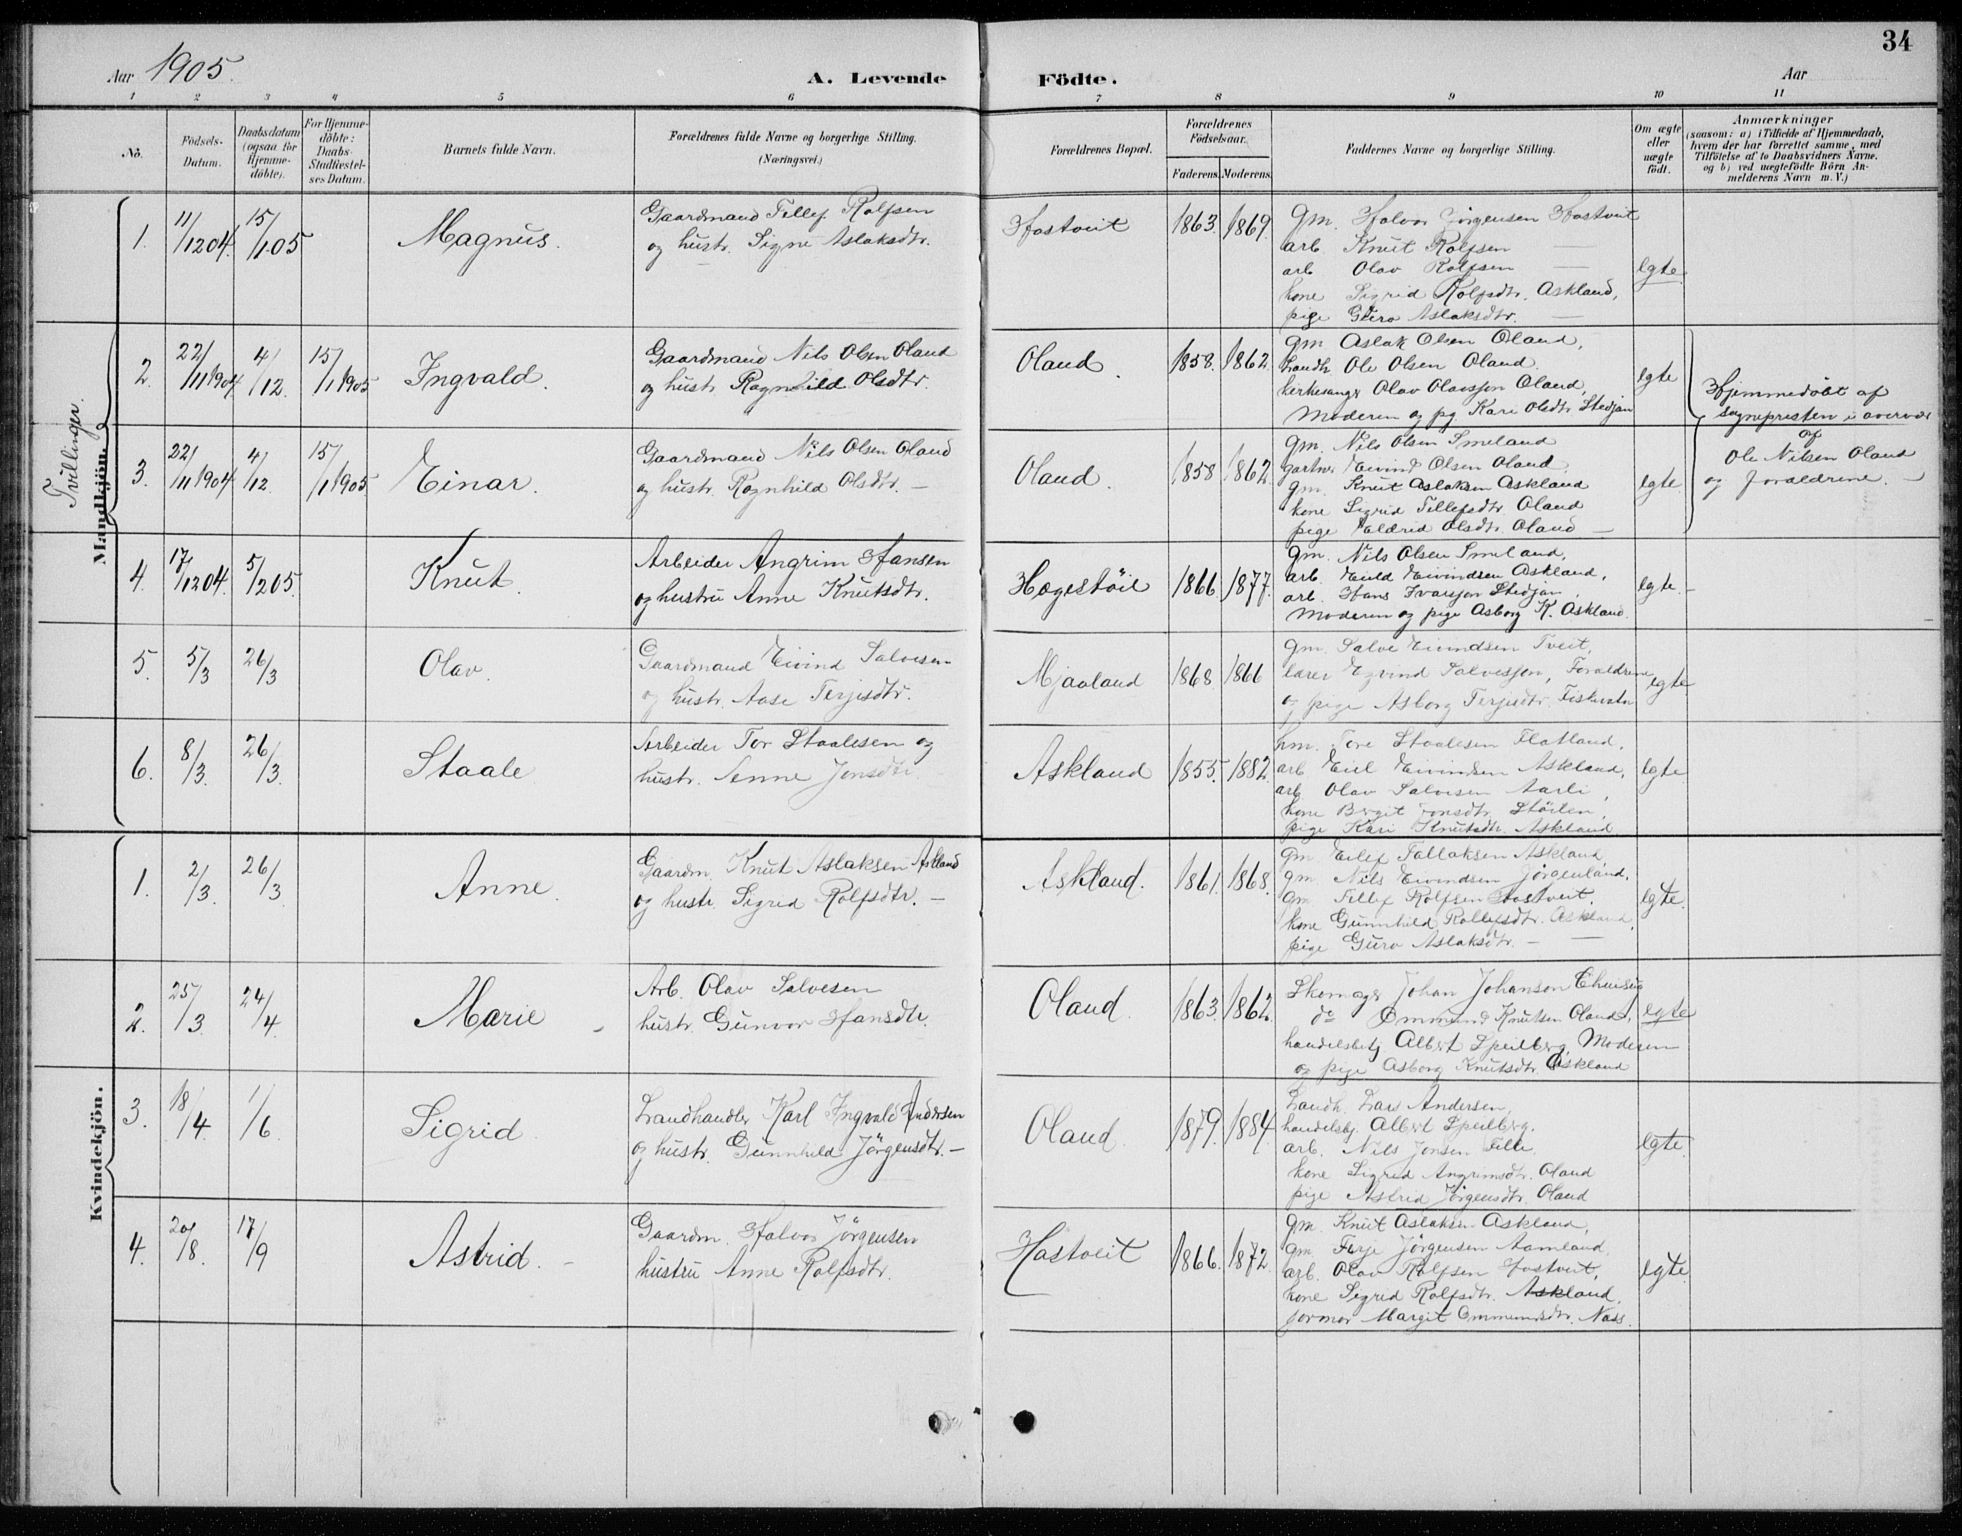 34
Aar 1905. A. Levende Födte. Aar
1 2 3 4 5 6 7 8 9 10 11
No.
Födsels-Datum.
Daabsdatum (ogsaa for Hjemme-döbte).
For Hjemme-döbte: Daabs-Stadfæstel-ses Datum.
Barnets fulde Navn.
Forældrenes fulde Navne og borgerlige Stilling. (Næringsvei.)
Forældrenes Bopæl.
Forældrenes Födselsaar.
Faderens. Moderens.
Faddernes Navne og borgerlige Stilling.
Om ægte eller uægte födt.
Anmærkninger
(saasom: a) i Tilfælde af Hjemmedaab,
hvem der har forrettet samme, med
Tilföielse af to Daabsvidners Navne,
og b) ved uægtefödte Börn An-
melderens Navn m. V.)
Mandkjön.
1. 11/12 04. 15/1 05 Magnus.
Gaardmand Tellef Rolfsen
og hustr. Signe Aslaksdtr.
Hastveit 1863. 1869.
gm. Halvor Jörgensen Hastveit
arb. Knut Rolfsen —
arb Olav Rolfsen —
kone Sigrid Rolfsdtr. Askland,
pige Guro Aslaksdtr. —
egte
Tvillinger.
2. 22/11 1904 4/12. 15/1 1905 Ingvald.
Gaardmand Nils Olsen Oland
og hustr Ragnhild Olsdtr.
Oland. 1858. 1862.
gm Aslak Olsen Oland,
landh Ole Olsen Oland.
kirkesanger Olav Olavsson Oland,
Moderen og pg Kari Olsdtr. Stedjan
egte
Hjemmedöbt af
sognepresten i overvær
af
Ole Nilsen Oland
og forældrene. —
3. 22/11 1904 4/12 15/1 1905 Einar.
Gaardmand Nils Olsen Oland
og hustr. Ragnhild Olsdtr. —
Oland. 1858 1862
gm. Nils Olsen Smeland
gartner Eivind Olsen Oland,
gm. Knut Aslaksen Askland
kone Sigrid Tellefsdtr. Oland
pige Eldrid Olsdtr. Oland —
egte
4. 17/12 04. 5/2 05. Knut.
Arbeider Angrim Hansen
og hustru Anne Knutsdtr.
Hægestöil 1866. 1877.
gm. Nils Olsen Smeland,
arb. Eivindsen Askland,
arb. Hans Ivarsson Stedjan,
Moderen og pige Asborg K. Askland.
egte. —
5. 5/3 26/3 Olav.
Gaardmand Eivind Salvesen
og hustr. Aase Terjesdtr.
Mjaaland 1868 1866
gm. Salve Eivindsen Tveit,
lærer Eyvind Salvesson, Forældrene
og pige Asborg Terjesdtr.
egte
6. 8/3. 26/3. Staale
Arbeider Tor Staalesen og
hustr. Anne Jonsdtr.
Askland 1855. 1882.
hm. Tore Staalesen Flatland,
arb Eivindsen Askland,
arb Olav Salvesen Aarli,
kone Birgit Jonsdtr. Stöilen,
pige Kari Knutsdtr. Askland
egte
Kvindekjön.
1. 2/3. 26/3 Anne.
Gaardm. Knut Aslaksen Askland
og hustr. Sigrid Rolfsdtr. —
Askland. 1861. 1868.
gm. Eilef Tallaksen Askland,
gm. Nils Eivindsen Jörgenland,
gm Tellef Rolfsen Hastveit,
kone Gunnhild Rollefsdtr. Askland,
pige Guro Aslaksdtr. — —
egte.
2. 25/3. 24/4. Marie
Arb. Olav Salvesen
hustr. Gunvor Hansdtr.
Oland. 1863. 1862.
Skomager Johan Johanson
do Ommund Knutsen Oland,
handelsbetj Albert Speilberg, Moderen
og pige Asborg Knutsdtr. Askland
egte
3. 18/4. 1/6. Sigrid
Landhandler Karl Ingvald Andersen
og hustr. Gunnhild Jörgensdtr. —
Oland. 1879. 1884.
Landh. Lars Andersen,
handelsbj. Albert Speilberg.
arb. Nils Jonsen Felle.
kone Sigrid Angrimsdtr. Oland
pige Astrid Jörgensdtr. Oland
egte.
4. 20/8. 17/9 Astrid. —
Gaardm. Halvor Jörgensen
hustru Anne Rolfsdtr.
Hastveit 1866. 1872.
gm. Knut Aslaksen Askland,
gm. Terje Jörgensen Aamland,
arb. Olav Rolfsen Hastveit,
kone Sigrid Rolfsdtr. Askland,
formor Margit Ommundsdtr. Næss.
egte.